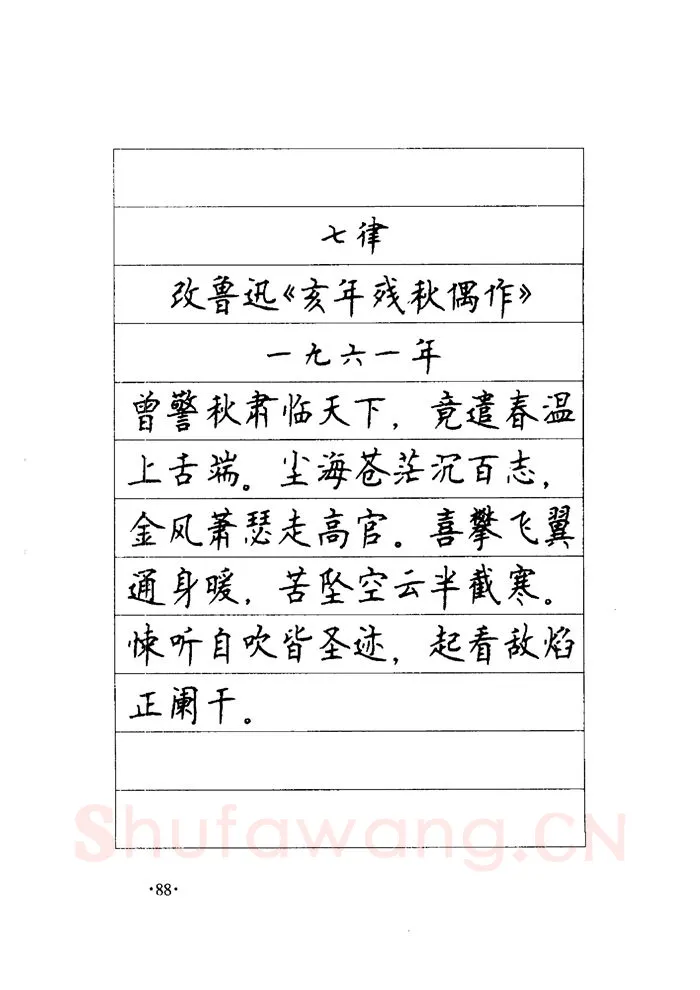 七律
改鲁迅《亥年残秋偶作》
一九六一年
曾警秋肃临天下，竟遣春温
上舌端。尘海苍茫沉百志，
金风萧瑟走高官。喜攀飞翼
通身暖，苦坠空云半截寒。
悚听自吹皆圣迹，起看敌焰
正阑干。
Shufawang.CN
·88·